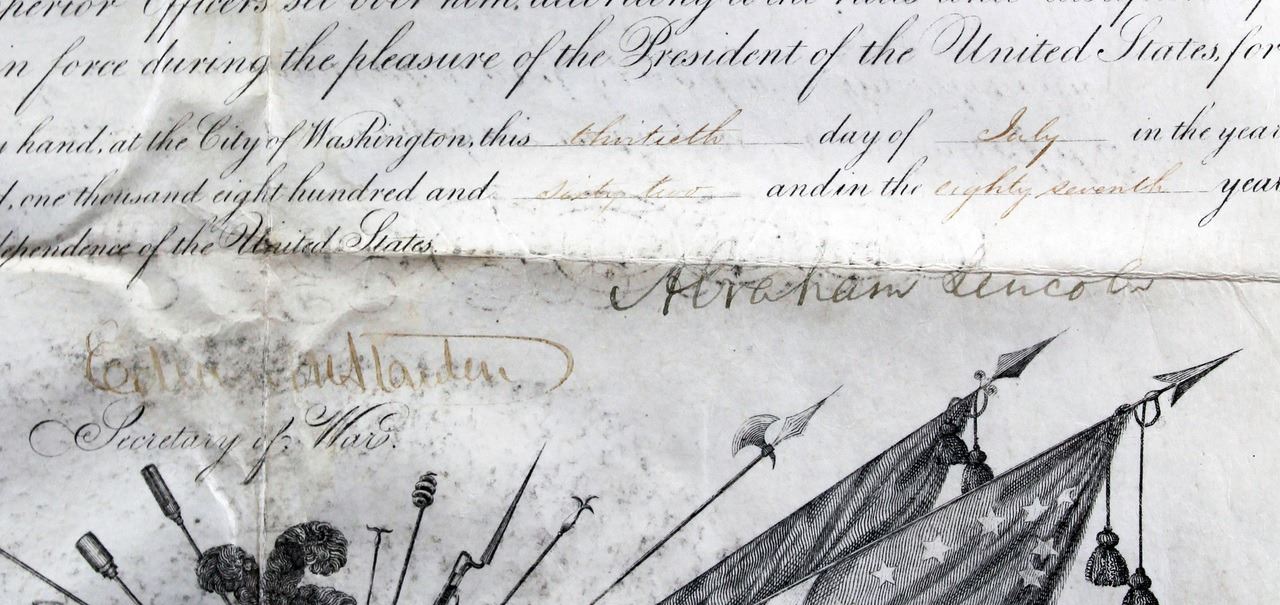 perior Officers set over him, according to the rules and discipline of
in force during the pleasure of the President of the United States, for
y hand, at the City of Washington, this thirtieth day of July in the year
d, one thousand eight hundred and sixty two and in the eighty seventh year
dependence of the United States.
Abraham Lincoln
Edwin M Stanton
Secretary of War.